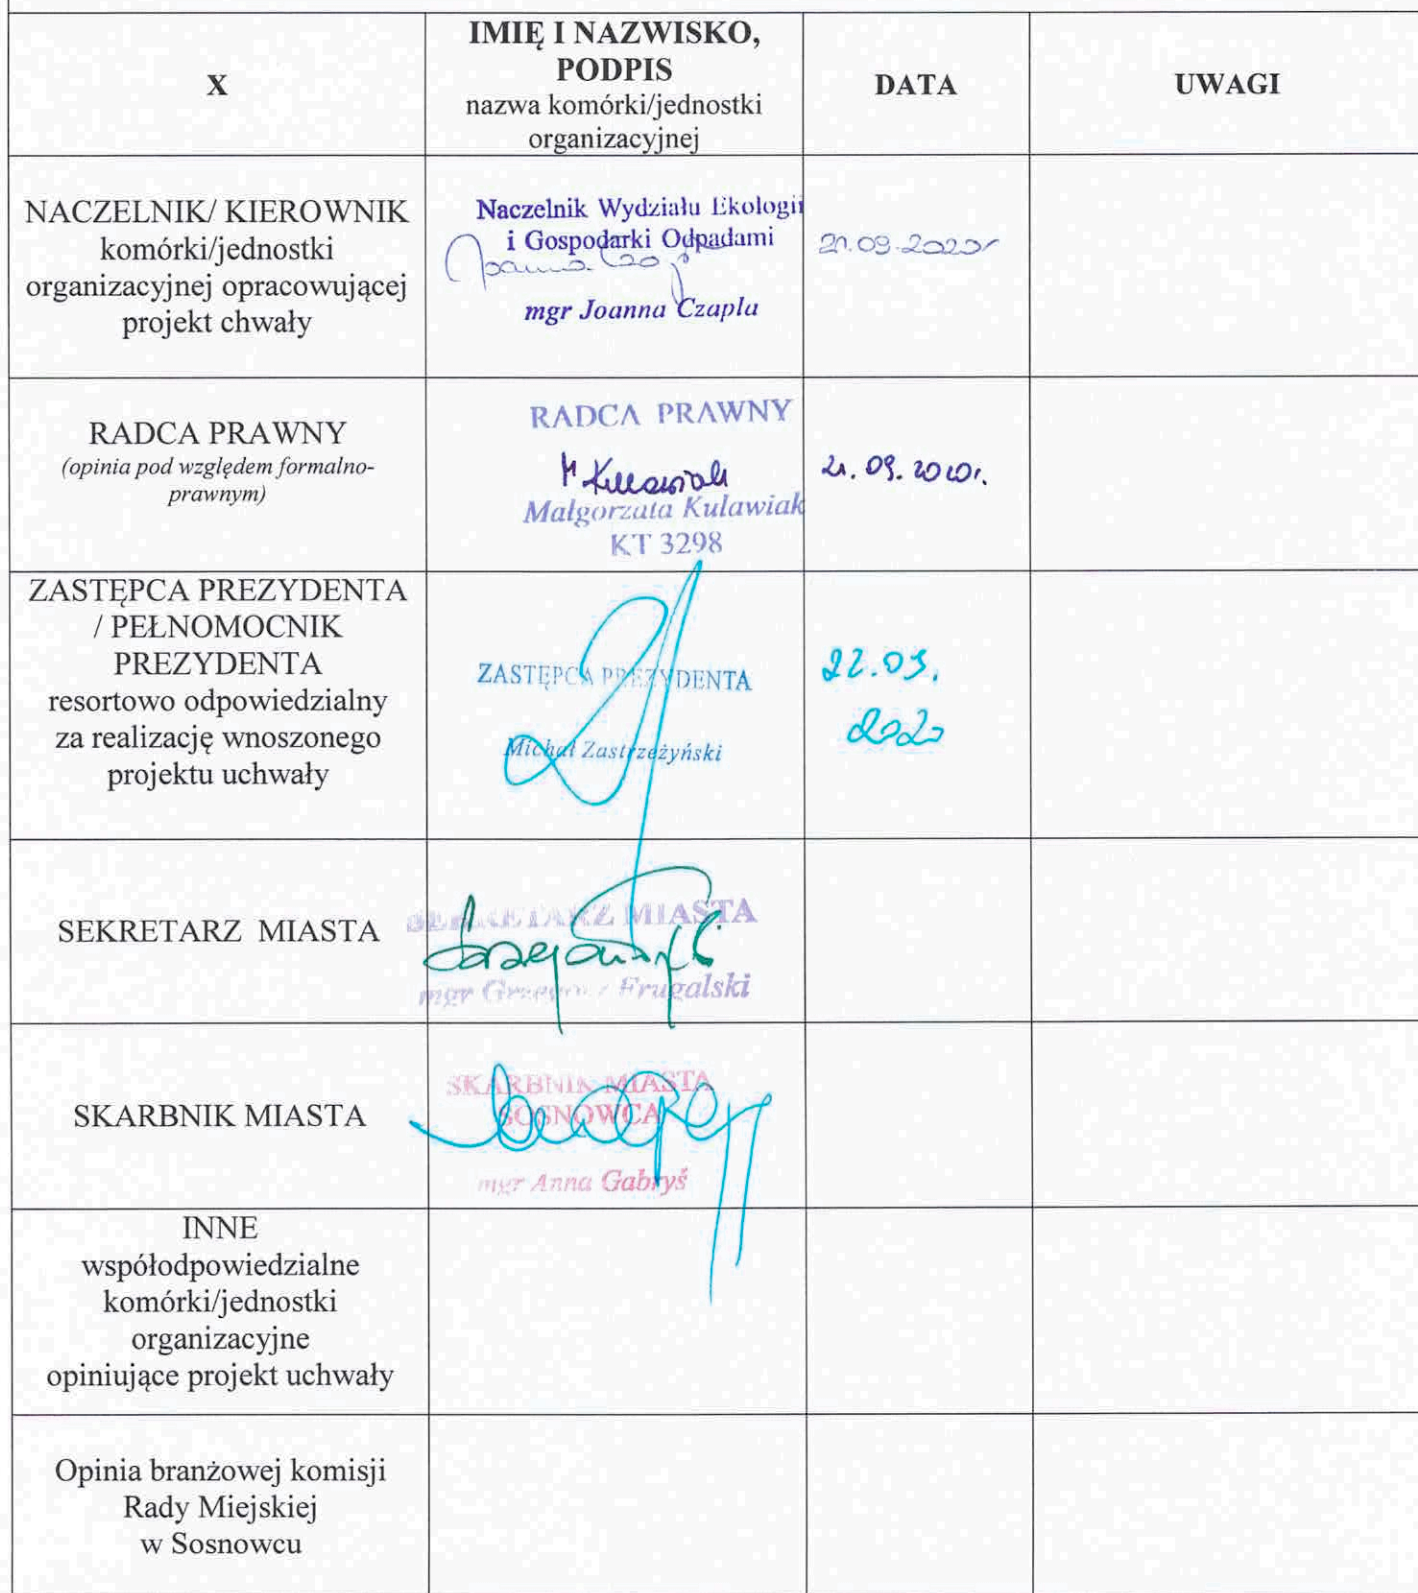 X
IMIĘ I NAZWISKO,
PODPIS
nazwa komórki/jednostki
organizacyjnej
DATA
UWAGI
NACZELNIK/ KIEROWNIK
komórki/jednostki
organizacyjnej opracowującej
projekt chwały
Naczelnik Wydziału Ekologii
i Gospodarki Odpadami
mgr Joanna Czapla
21.09.2020r
RADCA PRAWNY
(opinia pod względem formalno-
prawnym)
RADCA PRAWNY
M Kulawiak
Małgorzata Kulawiak
KT 3298
21. 09. 2020r.
ZASTĘPCA PREZYDENTA
/ PEŁNOMOCNIK
PREZYDENTA
resortowo odpowiedzialny
za realizację wnoszonego
projektu uchwały
ZASTĘPCA PREZYDENTA
Michał Zastrzeżyński
22.09.
2020
SEKRETARZ MIASTA
SEKRETARZ MIASTA
mgr Grzegorz Frugalski
SKARBNIK MIASTA
SKARBNIK MIASTA
SOSNOWCA
mgr Anna Gabryś
INNE
współodpowiedzialne
komórki/jednostki
organizacyjne
opiniujące projekt uchwały
Opinia branżowej komisji
Rady Miejskiej
w Sosnowcu